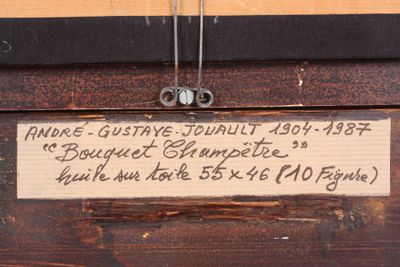 ANDRÉ-GUSTAVE-JOUAULT 1904-1987
"Bouquet Champêtre"
huile sur toile 55x46 (10 Figure)